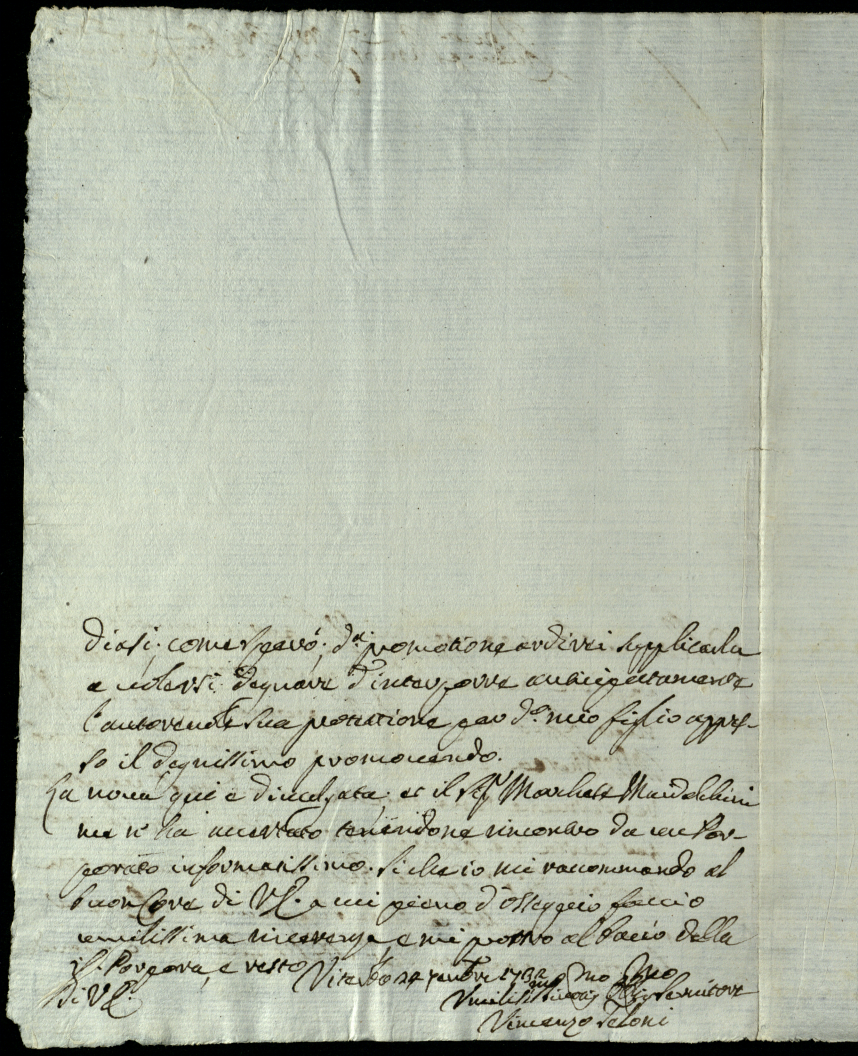 diasi. come sperò. d.ª promotione ardirei supplicarla
a volersi degnare d'interporre anticipatamente
l'autorevole sua protettione per d.º mio figlio appres-
so il degnissimo promovendo.
La nova qui è divulgata; et il Sig.r Marchese Maidalchini
me n'ha accertato tenendone rincontro da un Por-
porato informatissimo. Si che io mi raccommando al
buon Core di V.E. a cui pieno d'ossequio faccio
umilissima riverenza, e mi porto al bacio della
S. Porpora, e resto Viterbo 24 1732
Di V.E.
Servitore
Vincenzo Peloni